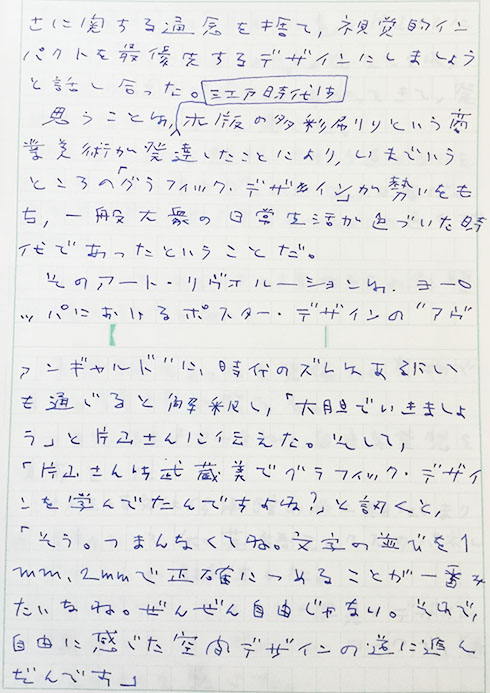 さに関する通念を捨て，視覚的イン
パクトを最優先するデザインにしましょう
と話し合った。江戸時代は
思うことは，木版の多彩刷りという商
業美術が発達したことにより，いまでいう
ところの「グラフィック・デザイン」が勢いをも
ち，一般大衆の日常生活が色づいた時
代であったということだ。
そのアート・リヴォルーションは，ヨーロ
ッパにおけるポスター・デザインの"アヴ
ァンギャルド"に，時代のズレはあるにい
も通じると解釈し，「大胆でいきましょ
う」と片山さんに伝えた。そして，
「片山さんは武蔵美でグラフィック・デザイ
ンを学んでたんですよね?」と訊くと，
「そう。つまんなくてね。文字の並びを1
mm、2mmで正確につめることが一番み
たいなね。ぜんぜん自由じゃない。それで，
自由に感じた空間デザインの道に進ん
だんです」